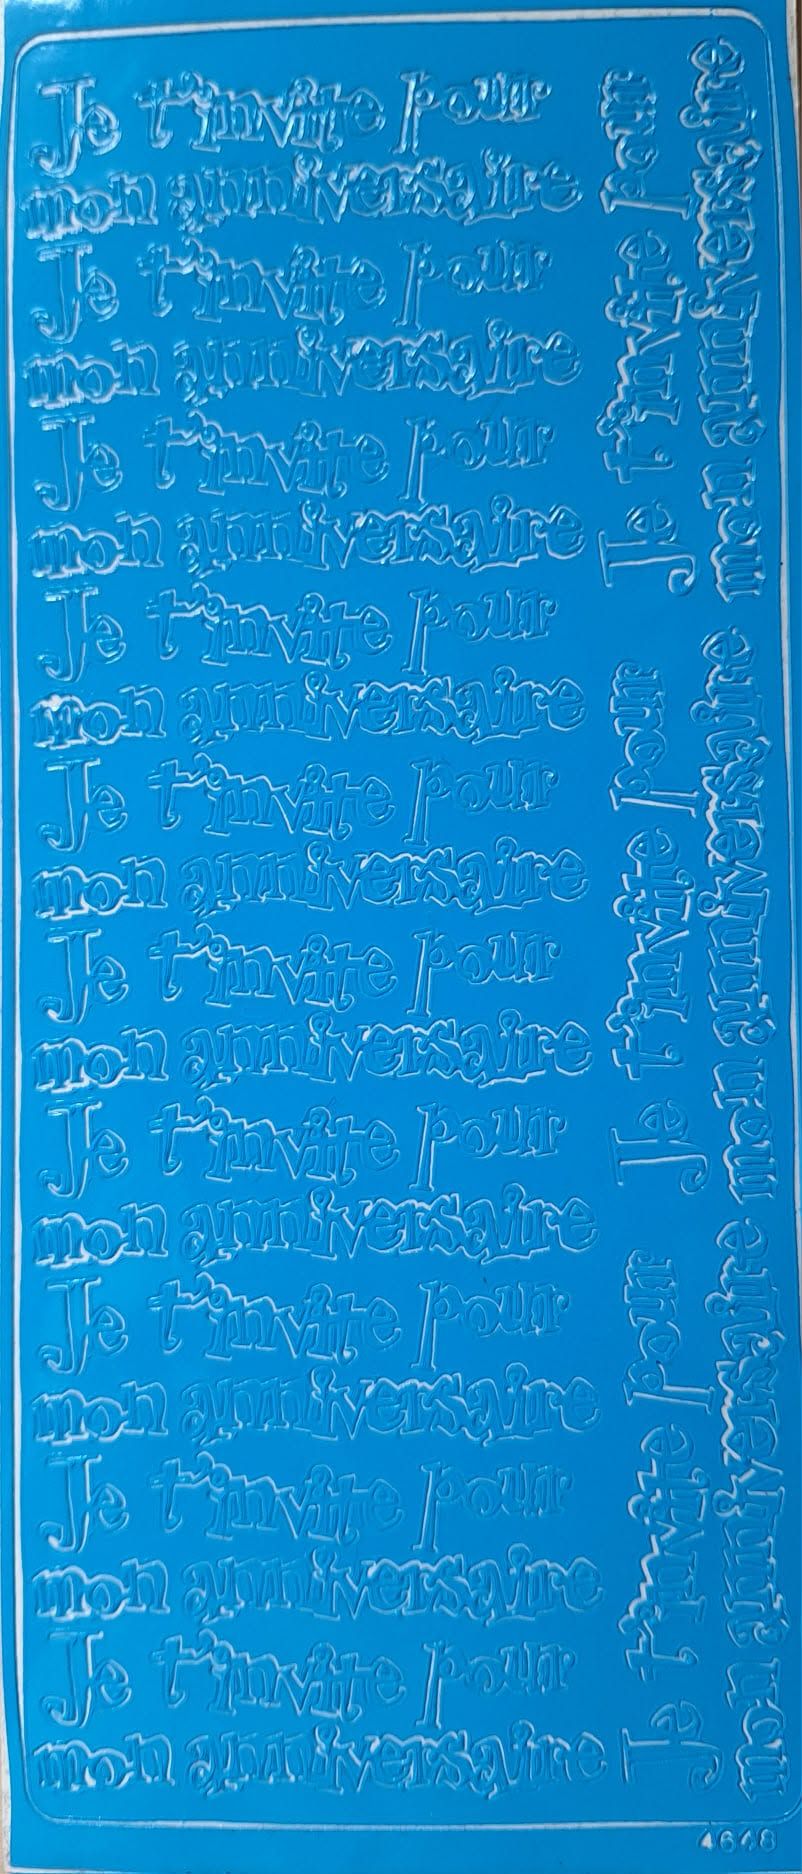 Je t'invite pour
mon anniversaire
Je t'invite pour
mon anniversaire
Je t'invite pour
mon anniversaire
Je t'invite pour
mon anniversaire
Je t'invite pour
mon anniversaire
Je t'invite pour
mon anniversaire
Je t'invite pour
mon anniversaire
Je t'invite pour
mon anniversaire
Je t'invite pour
mon anniversaire
Je t'invite pour
mon anniversaire
Je t'invite pour
mon anniversaire
Je t'invite pour
mon anniversaire
Je t'invite pour
mon anniversaire
4648